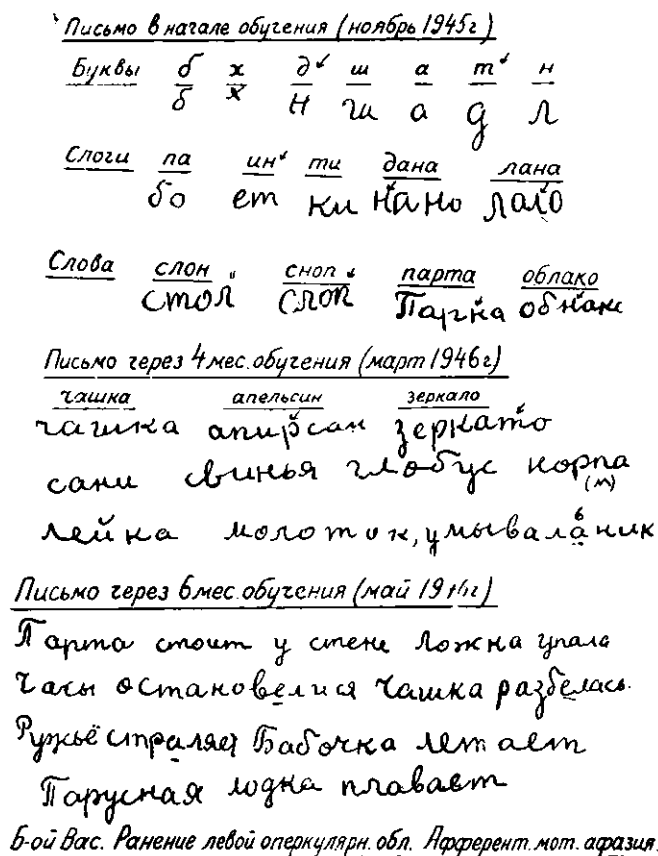 Письмо в начале обучения (ноябрь 1945г)
Буквы б х д ш а т н
б х н ш а д л
Слоги па ин ти дана лана
бо ет ки нано лало
Слова слон сноп парта облако
стол слоп Парка обнак
Письмо через 4 мес. обучения (март 1946г)
чашка апельсин зеркало
чашка апирсан зеркато
сани свинья глобус корпа
(т)
лейка молоток, умываланик
Письмо через 6 мес. обучения (май 1946г)
Парта стоит у стене Ложка упала
Часы остановелися чашка разбелась.
Ружьё страляет Бабочка летает
Парусная лодка плавает
Б-ой Вас. Ранение левой оперкулярн. обл. Афферент. мот. афазия.